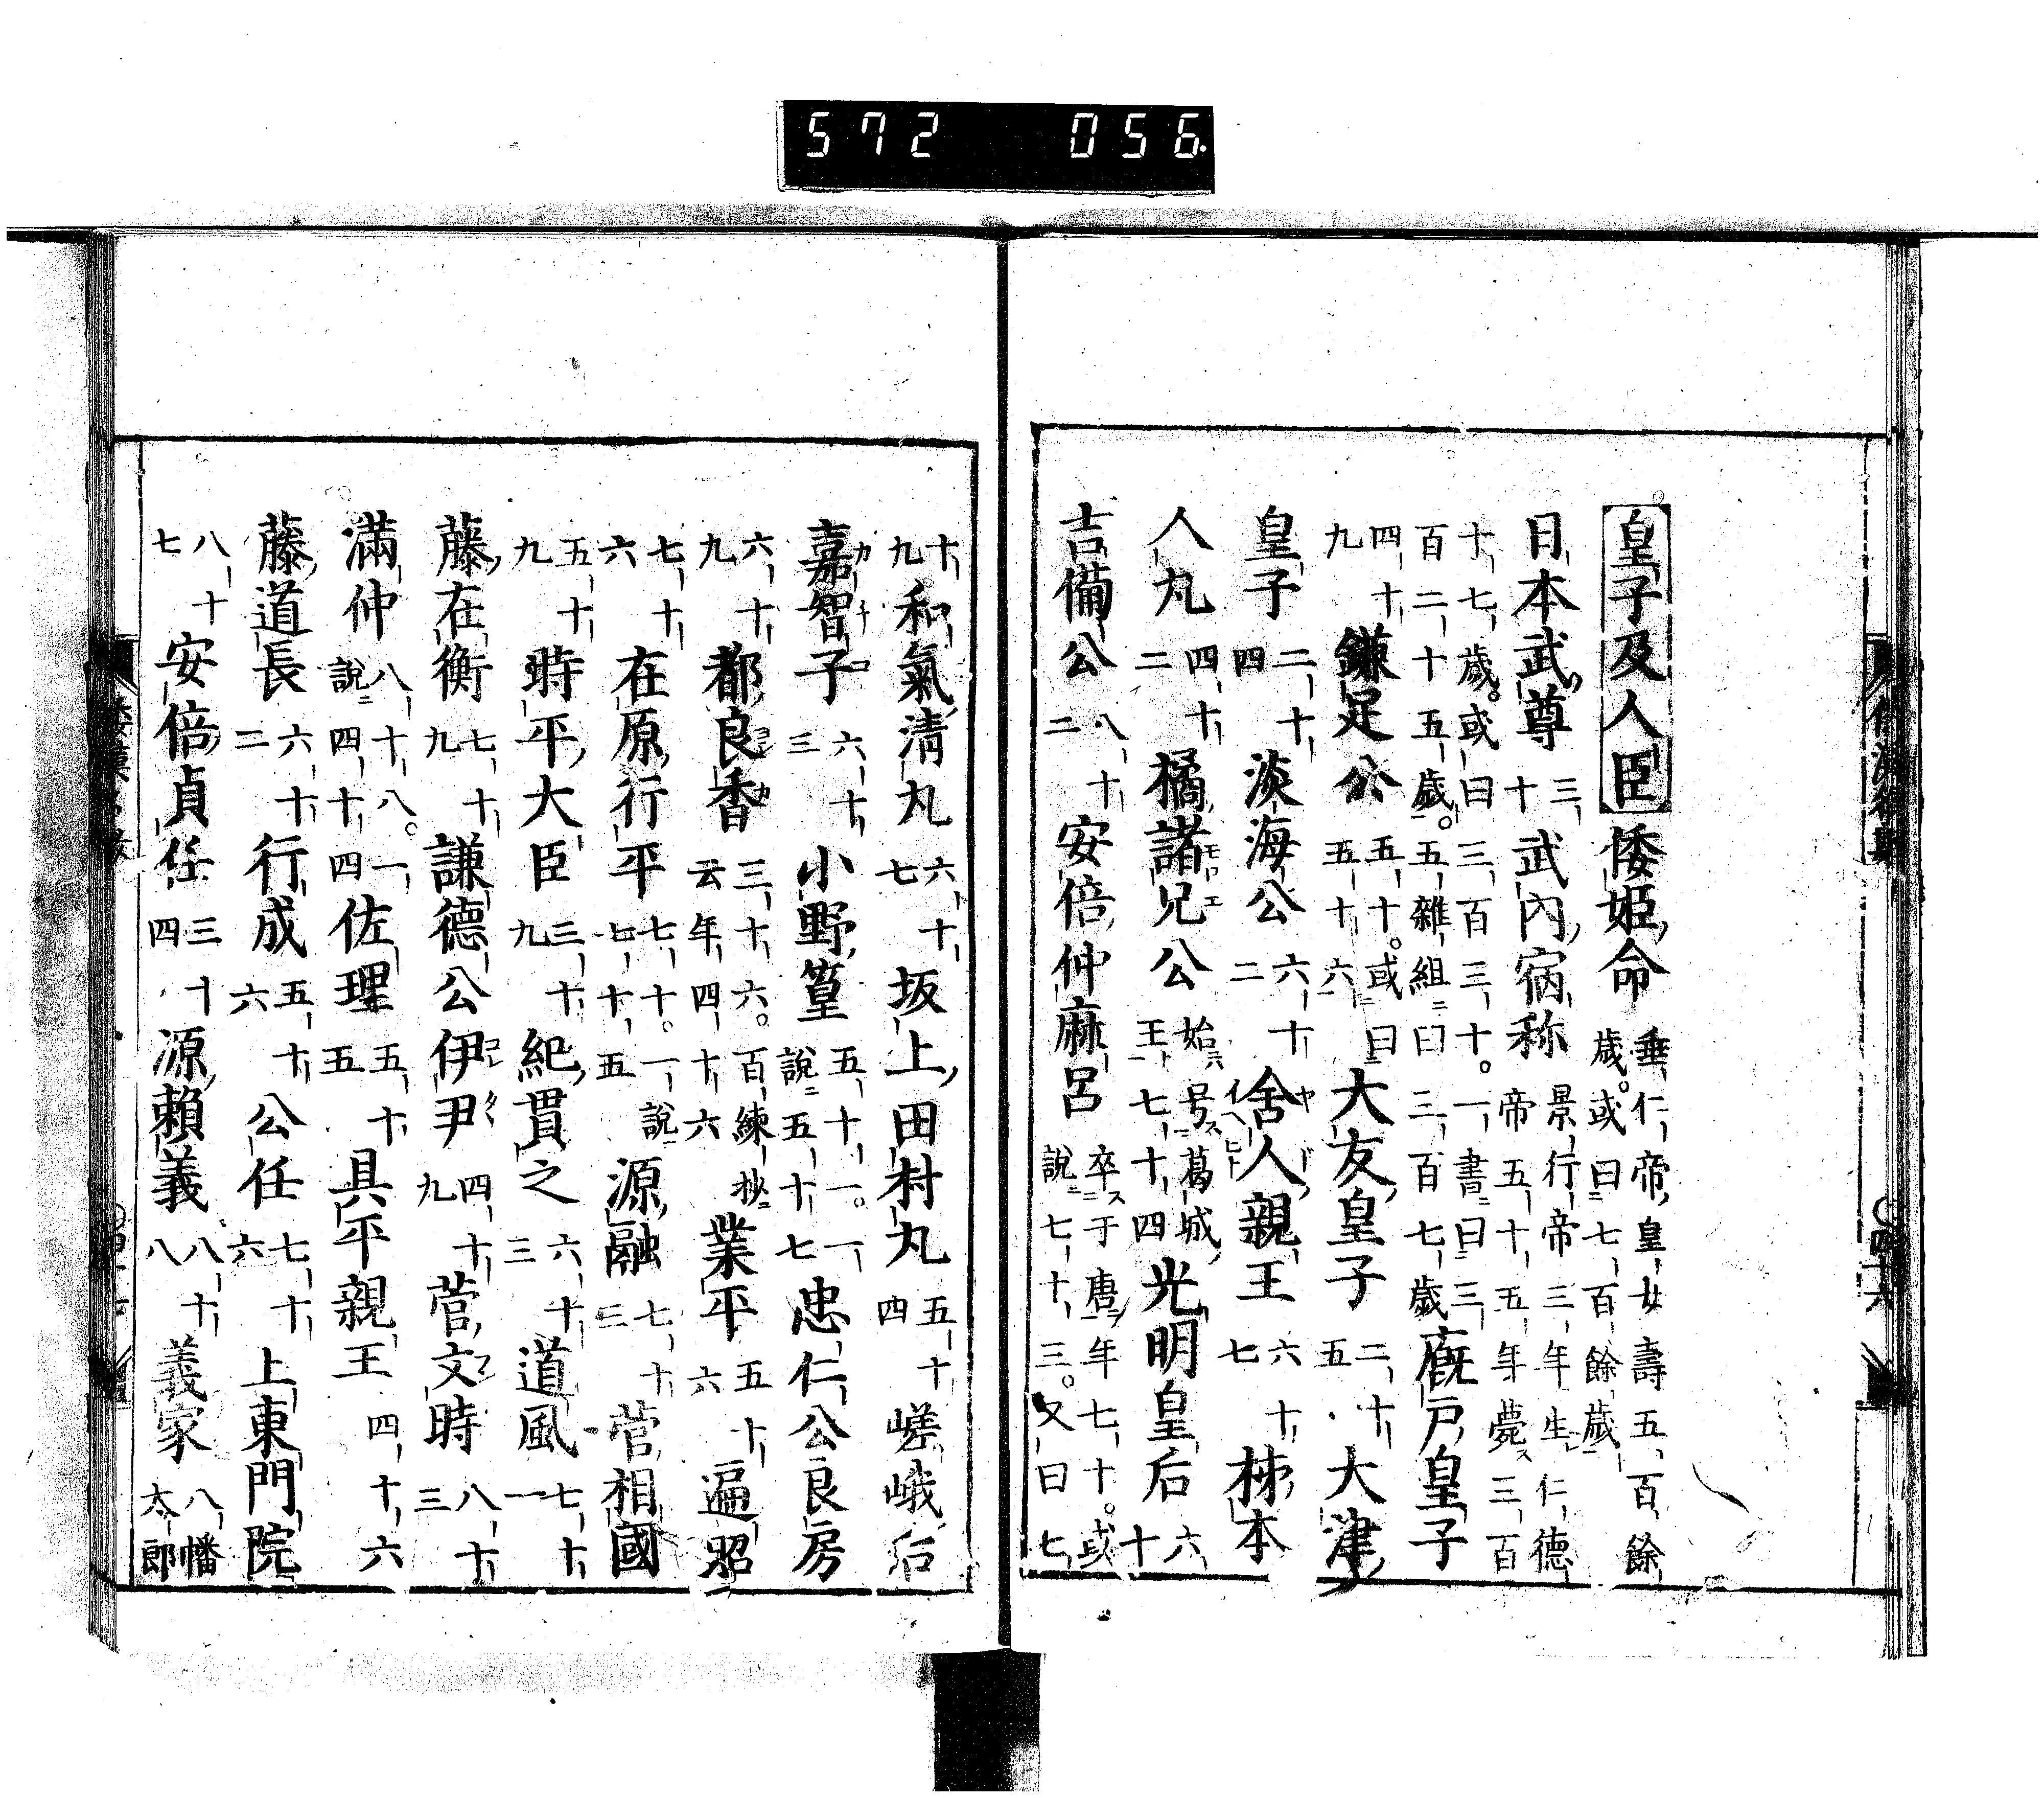 572 056
皇子及人臣 倭姫命 垂仁帝皇女壽五百餘歳。或曰七百餘歳
日本武尊 三十 武内宿称 景行帝三年生仁德帝五十五年薨ス三百
十七歳。或曰三百三十。一書ニ曰三百二十五歳。五雜組ニ曰三百七歳 廐戸皇子
四十九 鎌足公 五十。或曰五十六 大友皇子 二十五 大津
皇子 二十四 淡海公 六十二 舍人親王 六十七 柹本
人丸 四十二 橘諸兄公 始メ号ス葛城王ト七十四 光明皇后 六十
吉備公 八十二 安倍仲麻呂 卒ス于唐ニ年七十。或説ニ七十三。又曰七
十九 和氣清丸 六十七 坂上田村丸 五十四 嵯峨后
嘉智子 六十三 小野篁 五十一。一説ニ五十七 忠仁公良房
六十九 都良香 三十六。百練抄ニ云年四十六 業平 五十六 遍昭
七十六 在原行平 七十。一説ニ七十五 源融 七十三 菅相國
五十九 時平大臣 三十九 紀貫之 六十三 道風 七十一
藤在衡 七十九 謙德公伊尹 四十九 菅文時 八十三
満仲 八十八。一説ニ四十四 佐理 五十五 具平親王 四十六
藤道長 六十二 行成 五十六 公任 七十六 上東門院
八十七 安倍貞任 三十四 源賴義 八十八 義家 八幡太郎